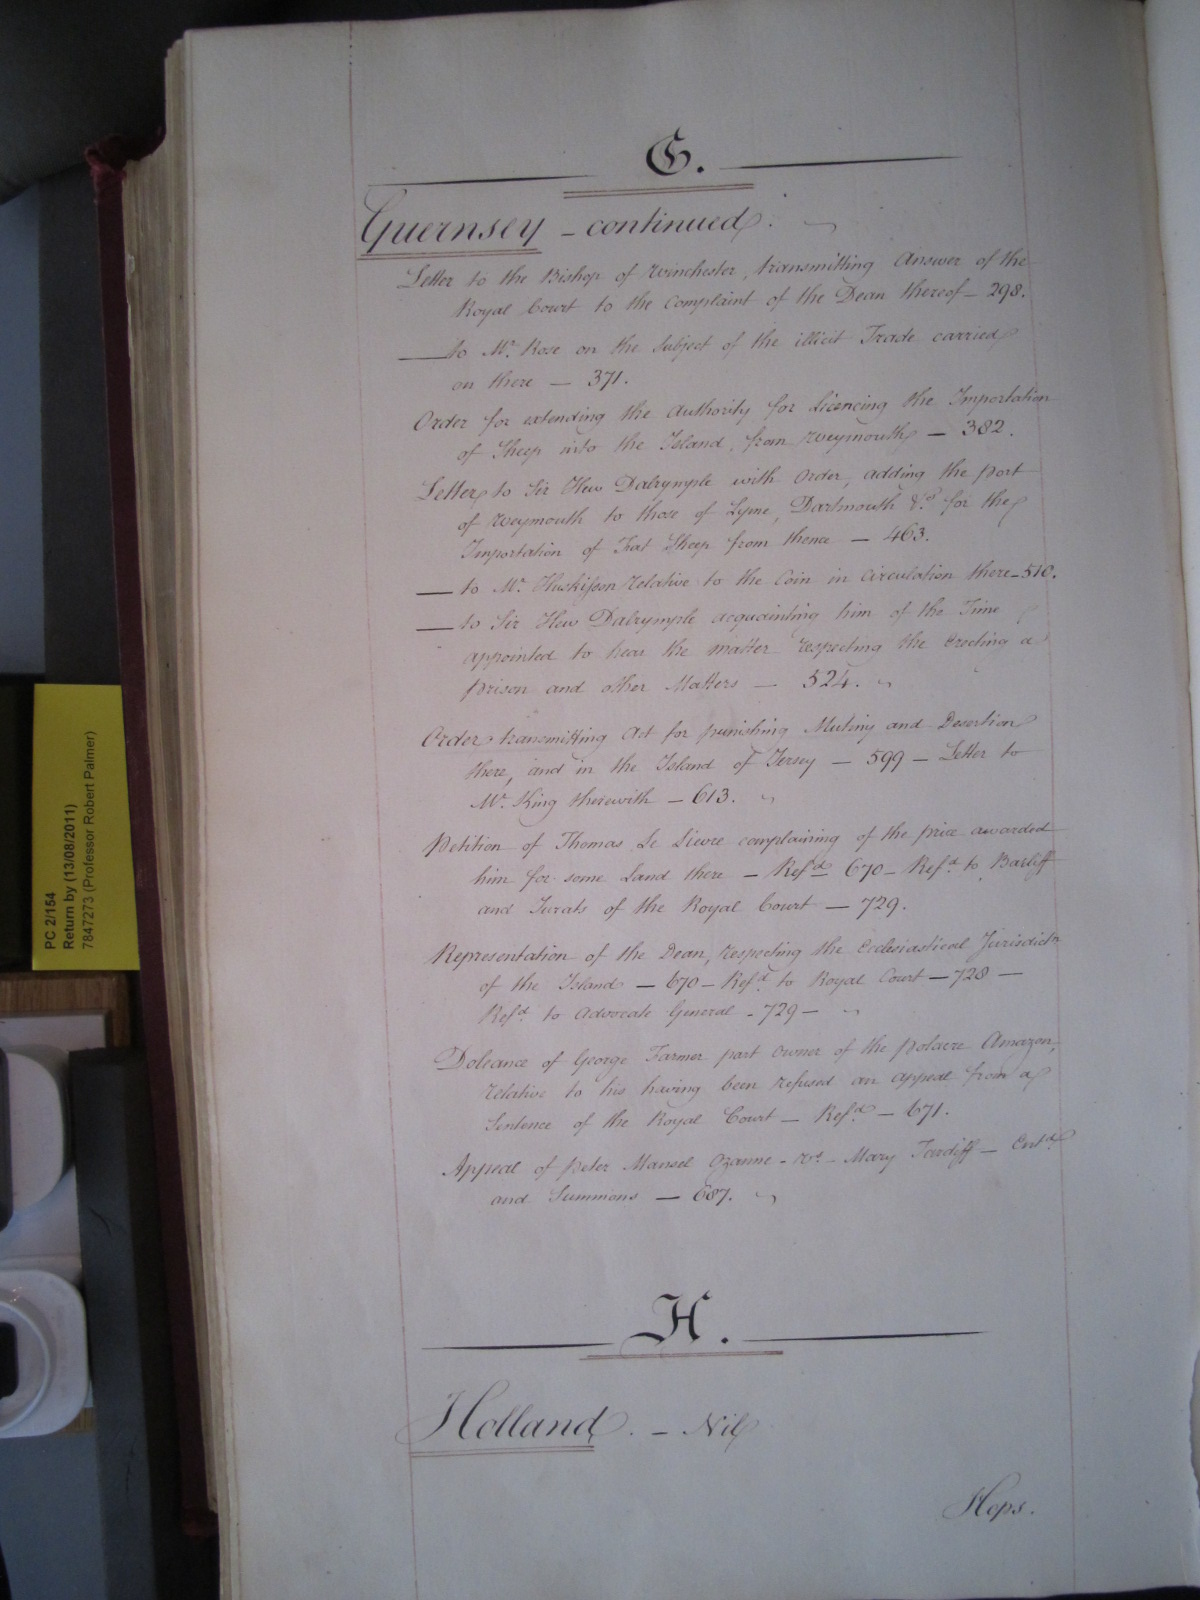 G.
Guernsey – continued.
Letter to the Bishop of Winchester, transmitting Answer of the
Royal Court to the Complaint of the Dean thereof – 298.
—— to Mr. Rose on the Subject of the illicit Trade carried
on there — 371.
Order for extending the Authority for Licencing the Importation
of Sheep into the Island, from Weymouth — 382.
Letter to Sir Hew Dalrymple with Order, adding the Port
of Weymouth to those of Lyme, Dartmouth &ca. for the
Importation of Fat Sheep from thence — 463.
—— to Mr. Huskisson relative to the Coin in Circulation there – 510.
—— to Sir Hew Dalrymple acquainting him of the Time
appointed to hear the matter respecting the Erecting a
Prison and other Matters — 524.
Order transmitting Act for punishing Mutiny and Desertion
there, and in the Island of Jersey — 599 — Letter to
Mr. King therewith – 613.
Petition of Thomas Le Lievre complaining of the price awarded
him for some Land there — Refd. 670 – Refd. to Bailiff
and Jurats of the Royal Court — 729.
Representation of the Dean, respecting the Ecclesiastical Jurisdictn.
of the Island — 670 – Refd. to Royal Court — 728 —
Refd. to Advocate General – 729 —
Doleance of George Farmer part Owner of the Polacre Amazon,
relative to his having been refused an appeal from a
Sentence of the Royal Court — Refd. — 671.
Appeal of Peter Mansel Ozanne – vs. – Mary Tardiff — Entd.
and Summons — 687.
H.
Holland. – Nil
Hops.
PC 2/154
Return by (13/08/2011)
7847273 (Professor Robert Palmer)